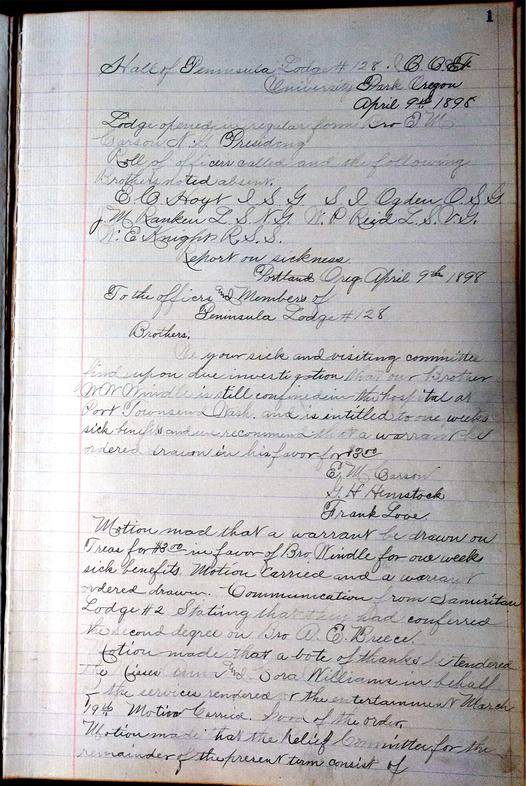 1
Hall of Peninsula Lodge # 128 I.O.O.F.
University Park Oregon
April 9th 1898
Lodge opened in regular form Bro E M
Carson N.G. Presiding
Roll of officers called and the following
Brothers noted absent.
E C Hoyt I S G S. I Ogden O. S. G
J M Ranken L. S. N. G. W. P Reid L. S. V. G.
W. E Knight R. S. S.
Report on sickness
Portland Oreg April 9th 1898
To the officers and Members of
Peninsula Lodge # 128
Brothers,
We your sick and visiting committee
find upon due investigation that our Brother
W W Windle is still confined in the hospital at
Port Townsend Wash. and is intitled to one weeks
sick benefits and we recommend that a warrant be
ordered drawn in his favor for $3.00
E, M Carson
G H Himstock
Frank Love
Motion mad that a warrant be drawn on
Treas for $3.00 in favor of Bro Windle for one weeks
sick benefits. Motion Carried and a warrant
ordered drawn. Communication from Samaritan
Lodge # 2 Stating that they had conferred
the second degree on Bro A. E. Breece.
Motion made that a vote of thanks be tendered
the Misses and Dora Williams in behalf
of the services rendered at the entertainment March
19th Motion Carried. Good of the order,
Motion made that the Relief Committee for the
remainder of the present term consist of